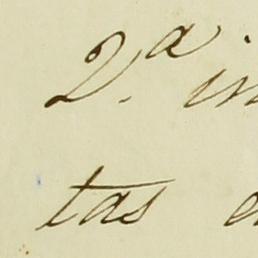 2.ª in
tas